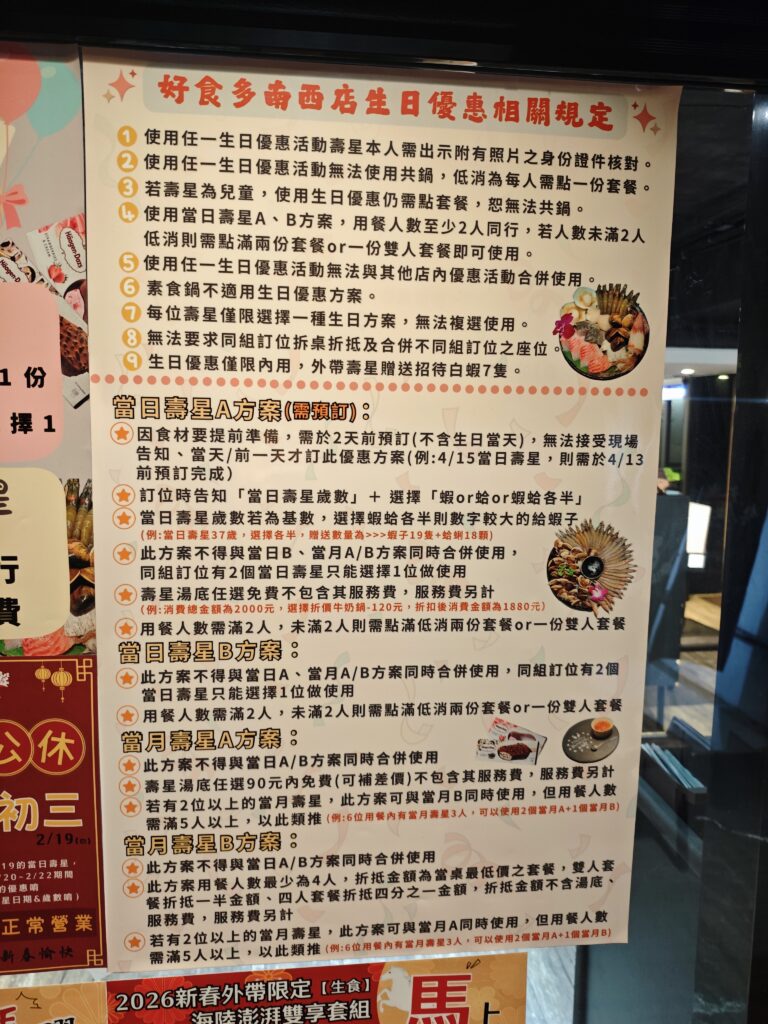 好食多南西店生日優惠相關規定
1 使用任一生日優惠活動壽星本人需出示附有照片之身份證件核對。
2 使用任一生日優惠活動無法使用共鍋，低消為每人需點一份套餐。
3 若壽星為兒童，使用生日優惠仍需點套餐，恕無法共鍋。
4 使用當日壽星A、B方案，用餐人數至少2人同行，若人數未滿2人
低消則需點滿兩份套餐or一份雙人套餐即可使用。
5 使用任一生日優惠活動無法與其他店內優惠活動合併使用。
6 素食鍋不適用生日優惠方案。
7 每位壽星僅限選擇一種生日方案，無法複選使用。
8 無法要求同組訂位拆桌折抵及合併不同組訂位之座位。
9 生日優惠僅限內用，外帶壽星贈送招待白蝦7隻。
當日壽星A方案(需預訂)：
因食材要提前準備，需於2天前預訂(不含生日當天)，無法接受現場
告知、當天/前一天才訂此優惠方案(例:4/15當日壽星，則需於4/13
前預訂完成)
訂位時告知「當日壽星歲數」＋ 選擇「蝦or蛤or蝦蛤各半」
當日壽星歲數若為基數，選擇蝦蛤各半則數字較大的給蝦子
(例:當日壽星37歲，選擇各半，贈送數量為>>>蝦子19隻+蛤蜊18顆)
此方案不得與當日B、當月A/B方案同時合併使用，
同組訂位有2個當日壽星只能選擇1位做使用
壽星湯底任選免費不包含其服務費，服務費另計
(例:消費總金額為2000元，選擇折價牛奶鍋-120元，折扣後消費金額為1880元)
用餐人數需滿2人，未滿2人則需點滿低消兩份套餐or一份雙人套餐
當日壽星B方案：
此方案不得與當日A、當月A/B方案同時合併使用，同組訂位有2個
當日壽星只能選擇1位做使用
用餐人數需滿2人，未滿2人則需點滿低消兩份套餐or一份雙人套餐
當月壽星A方案：
此方案不得與當日A/B方案同時合併使用
壽星湯底任選90元內免費(可補差價)不包含其服務費，服務費另計
若有2位以上的當月壽星，此方案可與當月B同時使用，但用餐人數
需滿5人以上，以此類推 (例:6位用餐內有當月壽星3人，可以使用2個當月A+1個當月B)
當月壽星B方案：
此方案不得與當日A/B方案同時合併使用
此方案用餐人數最少為4人，折抵金額為當桌最低價之套餐，雙人套
餐折抵一半金額、四人套餐折抵四分之一金額，折抵金額不含湯底、
服務費，服務費另計
若有2位以上的當月壽星，此方案可與當月A同時使用，但用餐人數
需滿5人以上，以此類推 (例:6位用餐內有當月壽星3人，可以使用2個當月A+1個當月B)
Häagen-Dazs
1 份
擇 1
行
費
公休
初三
2/19
19的當日壽星，
20~2/22期間
的優惠唷
星日期&歲數唷)
正常營業
新春愉快
2026新春外帶限定【生食】
海陸澎湃雙享套組
馬上